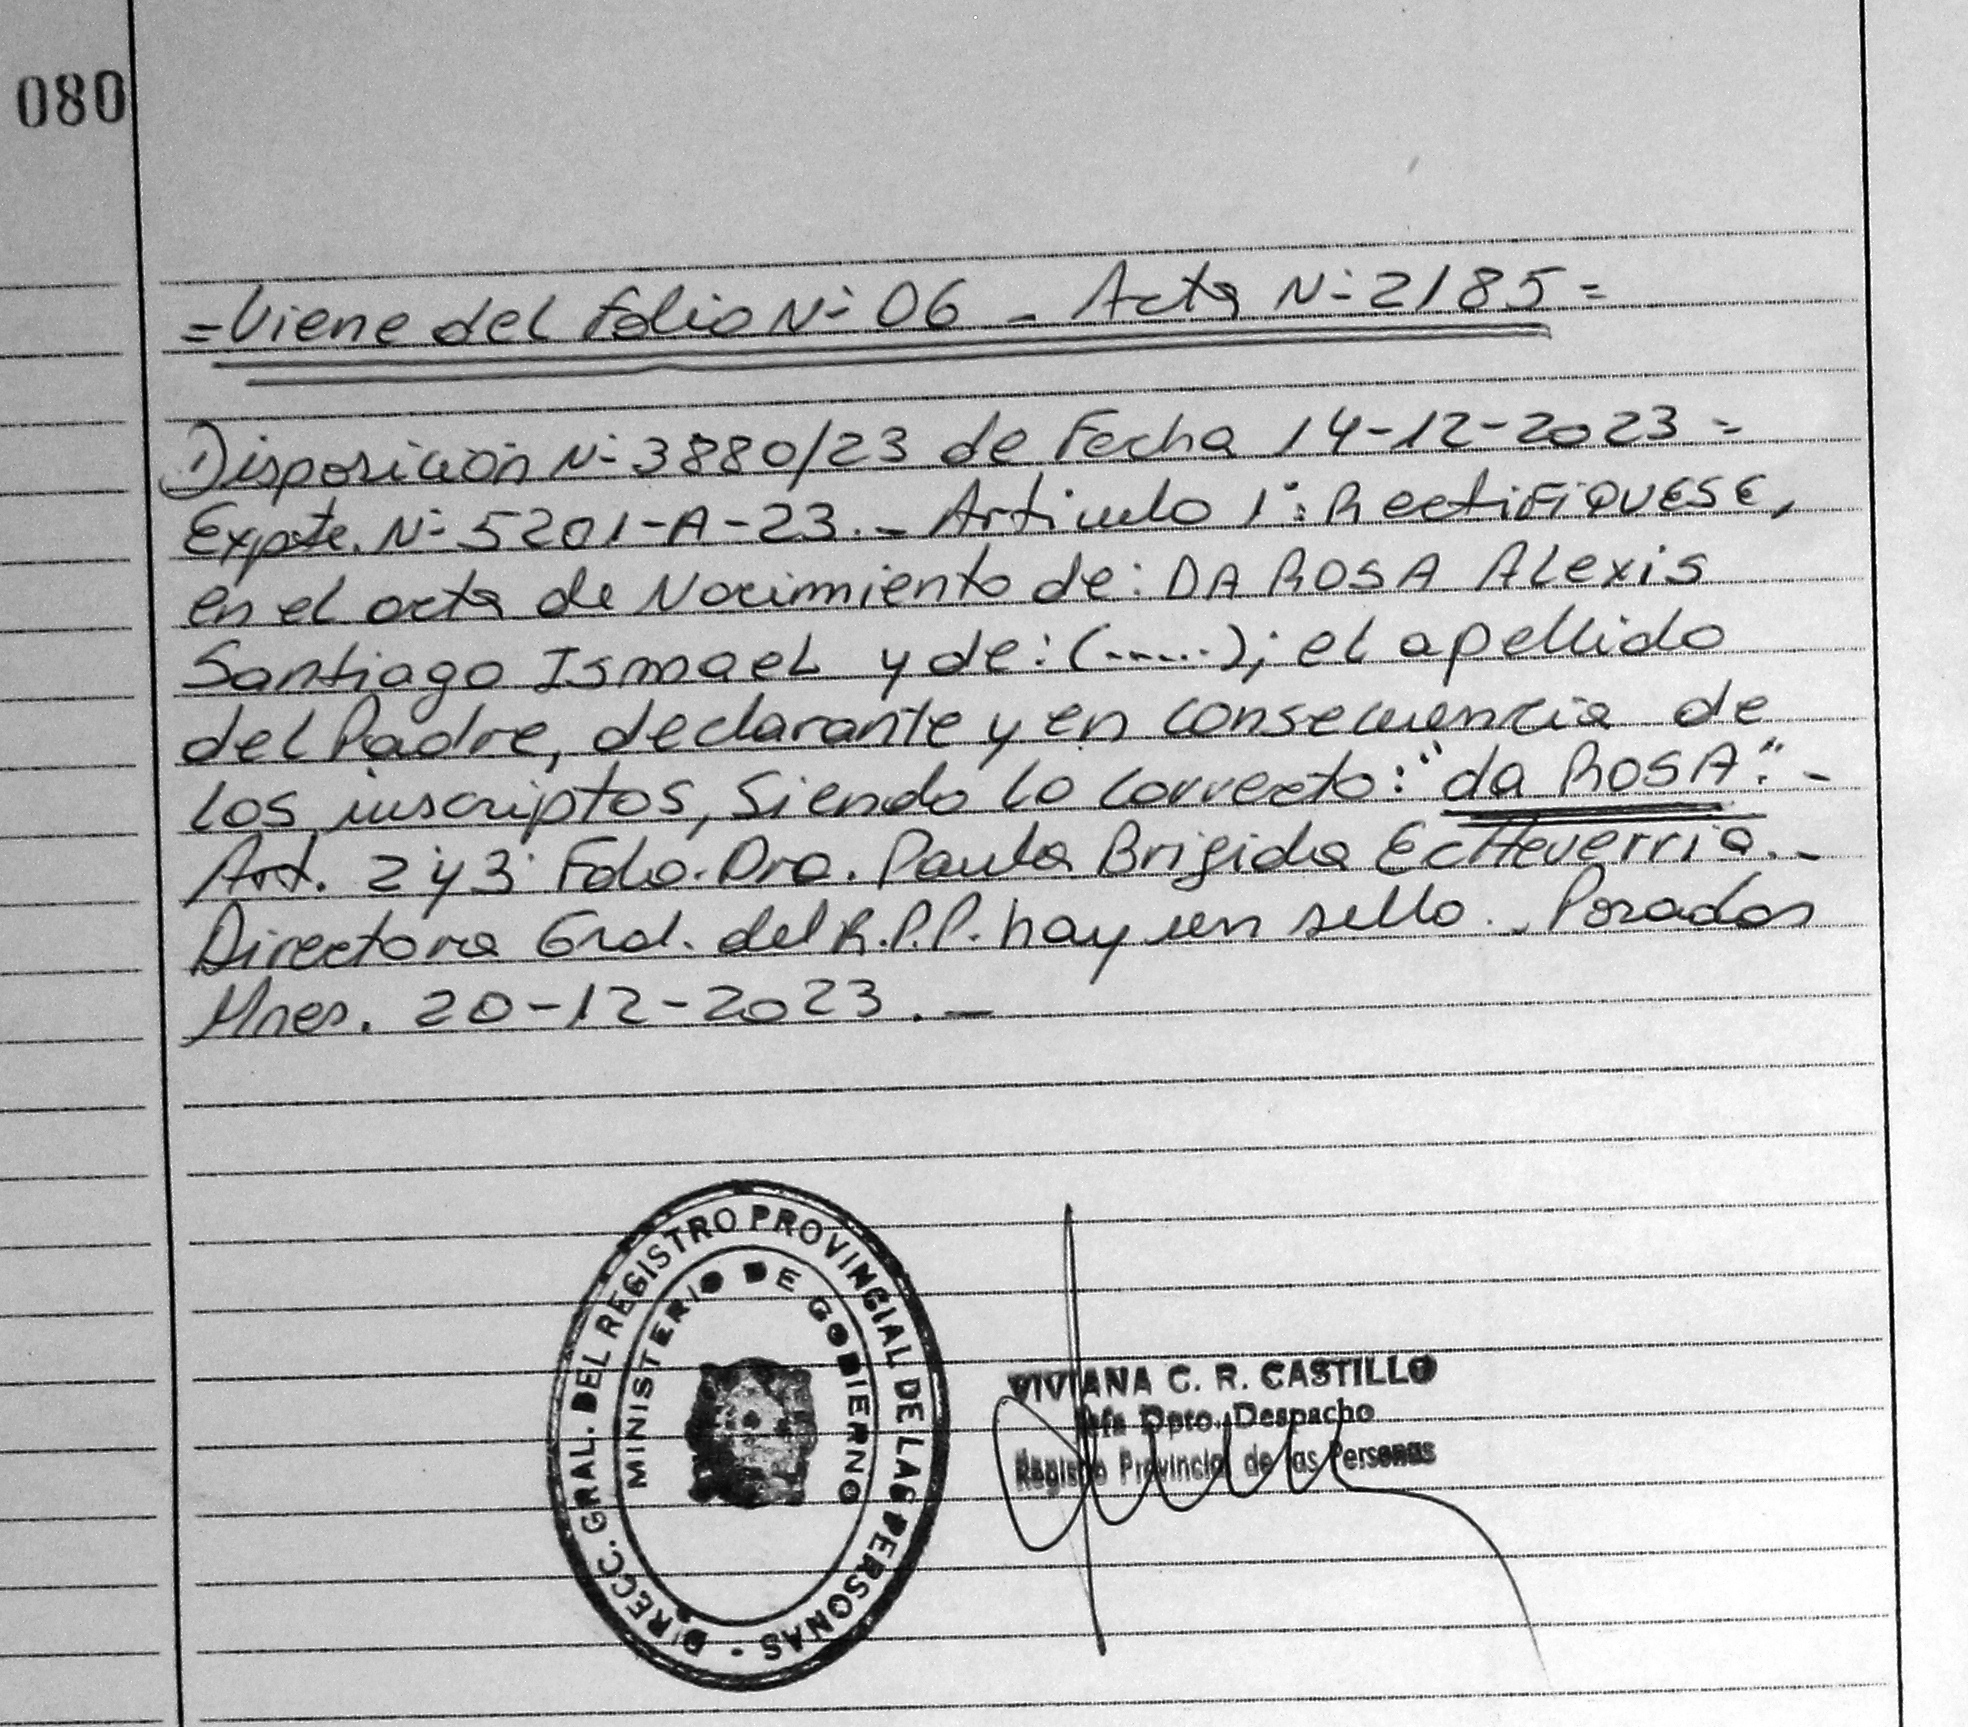 080
=Viene del Folio Nº 06 - Acta Nº 2185=
Disposición Nº 3880/23 de Fecha 14-12-2023 =
Expte. Nº 5201-A-23.- Articulo 1º: RectiFIQUESE,
en el acta de Nacimiento de: DA ROSA Alexis
Santiago Ismael y de: (......); el apellido
del Padre, declarante y en consecuencia de
los inscriptos, Siendo lo correcto: "da ROSA".-
Art. 2 y 3 Fdo. Dra. Paula Brigida Echeverria.-
Directora Gral. del R.P.P. hay un sello.- Posadas
Mnes. 20-12-2023.-
DIRECC. GRAL. DEL REGISTRO PROVINCIAL DE LAS PERSONAS -
MINISTERIO DE GOBIERNO
VIVIANA C. R. CASTILLO
Jefa Dpto. Despacho
Registro Provincial de las Personas